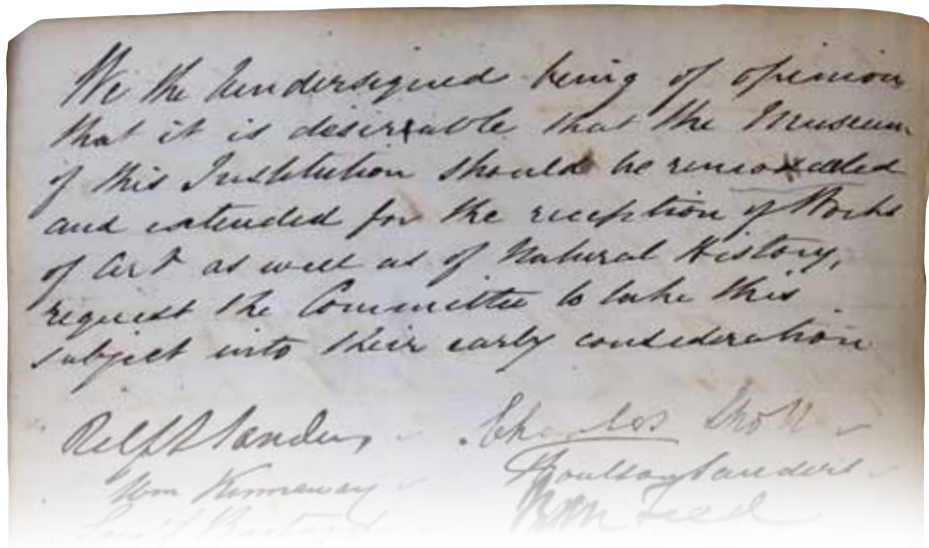 We the Undersigned being of opinion
that it is desirable that the Museum
of this Institution should be remodelled
and extended for the reception of Works
of Art as well as of Natural History,
request the Committee to take this
subject into their early consideration
Ralph Sanders
Wm Kennaway
Sanders